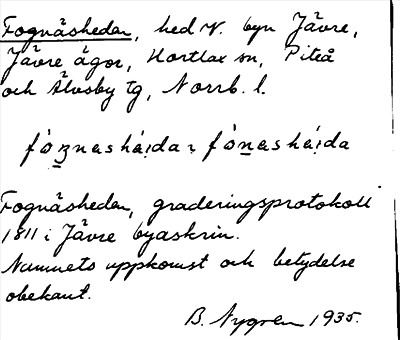 Fognäsheden, hed N. byn Jävre,
Jävre ägor, Hortlax sn, Piteå
och Älvsby tg, Norrb. l.
fóʒnashá:ida ɿ fónashá:ida
Fognäsheden, graderingsprotokoll
1811 i Jävre byaskrin.
Namnets uppkomst och betydelse
obekant.
B. Nygren 1935.